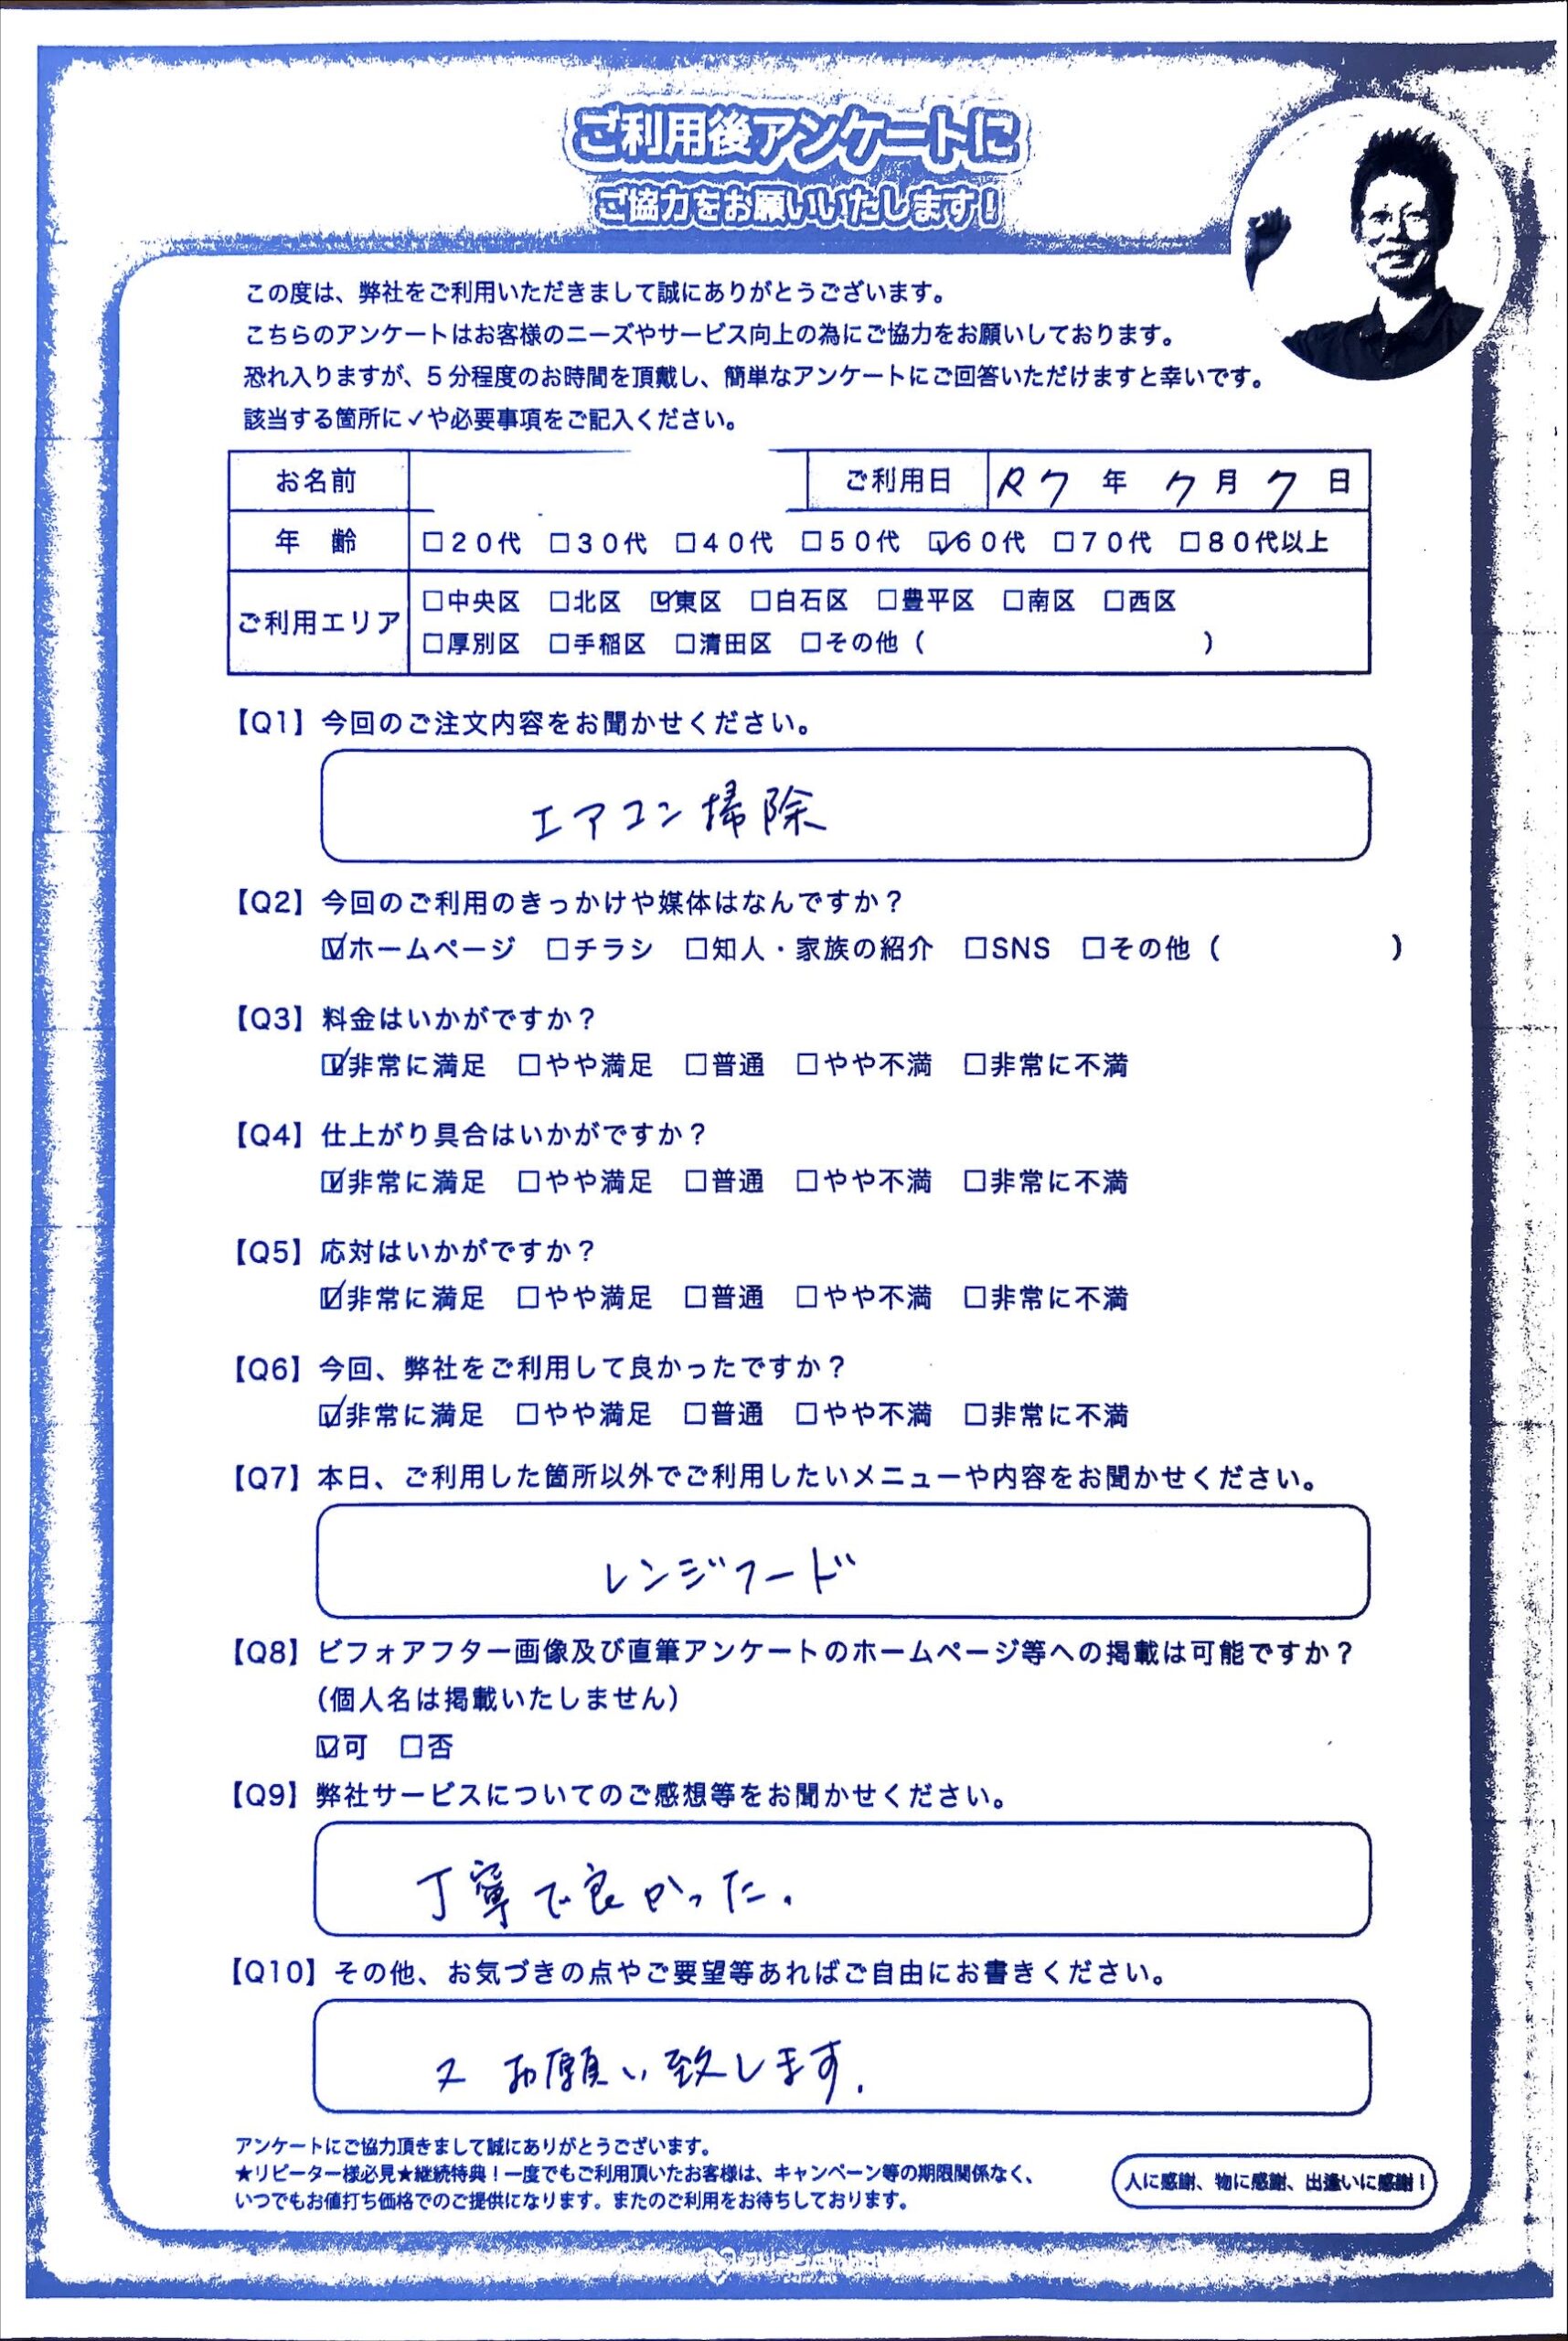 ご利用後アンケートに
ご協力をお願いいたします!
この度は、弊社をご利用いただきまして誠にありがとうございます。
こちらのアンケートはお客様のニーズやサービス向上の為にご協力をお願いしております。
恐れ入りますが、5分程度のお時間を頂戴し、簡単なアンケートにご回答いただけますと幸いです。
該当する箇所に✓や必要事項をご記入ください。
お名前 ご利用日 R7年 7月 7日
年 齢 □20代 □30代 □40代 □50代 ☑60代 □70代 □80代以上
ご利用エリア □中央区 □北区 ☑東区 □白石区 □豊平区 □南区 □西区
□厚別区 □手稲区 □清田区 □その他( )
【Q1】今回のご注文内容をお聞かせください。
エアコン掃除
【Q2】今回のご利用のきっかけや媒体はなんですか?
☑ホームページ □チラシ □知人・家族の紹介 □SNS □その他( )
【Q3】料金はいかがですか?
☑非常に満足 □やや満足 □普通 □やや不満 □非常に不満
【Q4】仕上がり具合はいかがですか?
☑非常に満足 □やや満足 □普通 □やや不満 □非常に不満
【Q5】応対はいかがですか?
☑非常に満足 □やや満足 □普通 □やや不満 □非常に不満
【Q6】今回、弊社をご利用して良かったですか?
☑非常に満足 □やや満足 □普通 □やや不満 □非常に不満
【Q7】本日、ご利用した箇所以外でご利用したいメニューや内容をお聞かせください。
レンジフード
【Q8】ビフォアフター画像及び直筆アンケートのホームページ等への掲載は可能ですか?
(個人名は掲載いたしません)
☑可 □否
【Q9】弊社サービスについてのご感想等をお聞かせください。
丁寧で良かった.
【Q10】その他、お気づきの点やご要望等あればご自由にお書きください。
又 お願い致します.
アンケートにご協力頂きまして誠にありがとうございます。
★リピーター様必見★継続特典!一度でもご利用頂いたお客様は、キャンペーン等の期限関係なく、
いつでもお値打ち価格でのご提供になります。またのご利用をお待ちしております。
人に感謝、物に感謝、出逢いに感謝!